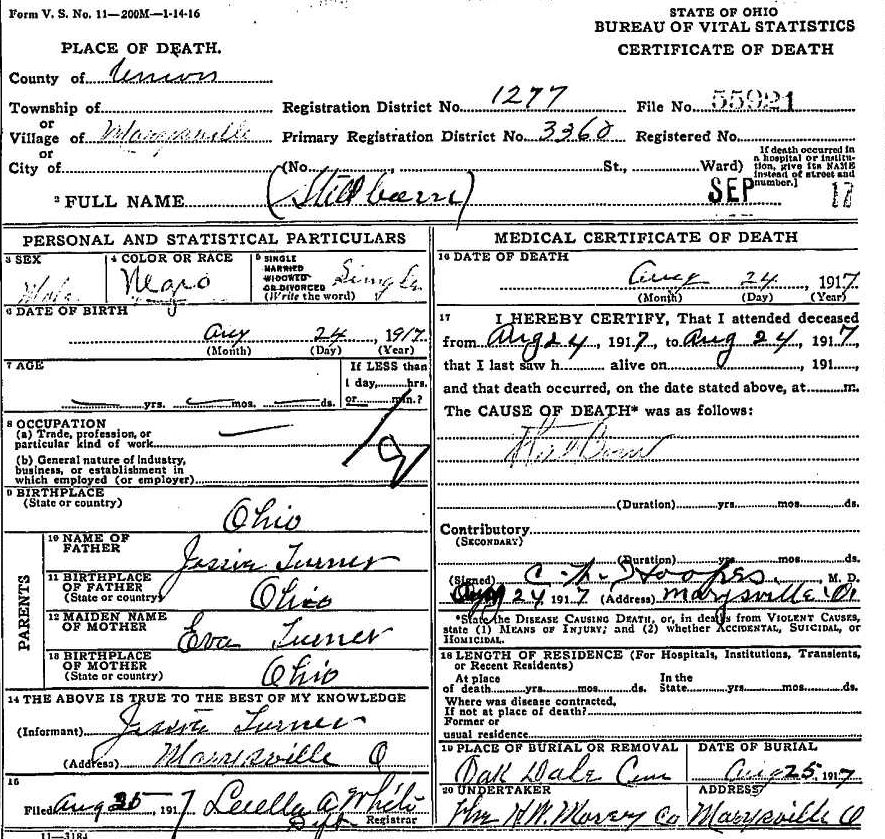 Form V. S. No. 11—200M—1-14-16
STATE OF OHIO
BUREAU OF VITAL STATISTICS
CERTIFICATE OF DEATH
PLACE OF DEATH.
County of Union
Township of
Registration District No. 1277
File No. 55921
or
Village of Marysville
Primary Registration District No. 3360
Registered No.
or
City of
(No. , St., Ward)
If death occurred in a hospital or institution, give its NAME instead of street and number.]
2 FULL NAME (Stillborn)
SEP 17
PERSONAL AND STATISTICAL PARTICULARS
3 SEX
Male
4 COLOR OR RACE
Negro
5 SINGLE
MARRIED
WIDOWED
OR DIVORCED
(Write the word)
Single
6 DATE OF BIRTH
Aug 24, 1917
(Month) (Day) (Year)
7 AGE
If LESS than
1 day, hrs.
or min.?
yrs. mos. ds.
8 OCCUPATION
(a) Trade, profession, or
particular kind of work
(b) General nature of industry,
business, or establishment in
which employed (or employer)
9 BIRTHPLACE
(State or country)
Ohio
PARENTS
10 NAME OF
FATHER
Jessie Turner
11 BIRTHPLACE
OF FATHER
(State or country)
Ohio
12 MAIDEN NAME
OF MOTHER
Eva Turner
13 BIRTHPLACE
OF MOTHER
(State or country)
Ohio
14 THE ABOVE IS TRUE TO THE BEST OF MY KNOWLEDGE
(Informant) Jessie Turner
(Address) Marysville O
15
Filed Aug 25, 1917 Luella A White
Registrar
11—3184
MEDICAL CERTIFICATE OF DEATH
16 DATE OF DEATH
Aug 24, 1917
(Month) (Day) (Year)
17 I HEREBY CERTIFY, That I attended deceased
from Aug 24, 1917, to Aug 24, 1917
that I last saw h alive on , 191
and that death occurred, on the date stated above, at m.
The CAUSE OF DEATH* was as follows:
Still Born
(Duration) yrs. mos. ds.
Contributory
(SECONDARY)
(Duration) yrs. mos. ds.
(Signed) C. M. Hoopes, M. D.
Aug 24 1917 (Address) Marysville O.
*State the DISEASE CAUSING DEATH, or, in deaths from VIOLENT CAUSES,
state (1) MEANS OF INJURY; and (2) whether ACCIDENTAL, SUICIDAL, or
HOMICIDAL.
18 LENGTH OF RESIDENCE (For Hospitals, Institutions, Transients,
or Recent Residents)
At place
of death yrs. mos. ds.
In the
State yrs. mos. ds.
Where was disease contracted,
If not at place of death?
Former or
usual residence
19 PLACE OF BURIAL OR REMOVAL
Oak Dale Cem
DATE OF BURIAL
Aug 25, 1917
20 UNDERTAKER
The H.W. Morey Co
ADDRESS
Marysville O